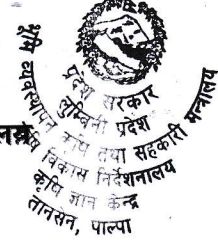 प्रदेश सरकार
लुम्बिनी प्रदेश
भूमि व्यवस्थापन कृषि तथा सहकारी मन्त्रालय
कृषि विकास निर्देशनालय
कृषि ज्ञान केन्द्र
तानसेन, पाल्पा